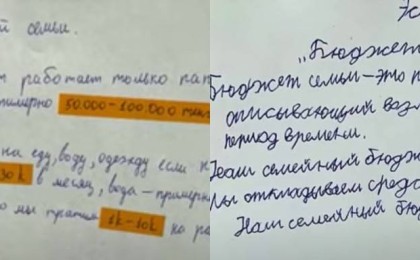 й семьи.
работает только пап
примерно 50.000-100.000 тен
на еду, воду, одежду если к
30k в месяц, вода - примерн
о мы тратим 1k-10k на ра
„Бюджет
Бюджет семьи - это
описывающий
период времени.
семейный бюдж
мы откладываем сред
Наш семейный бю